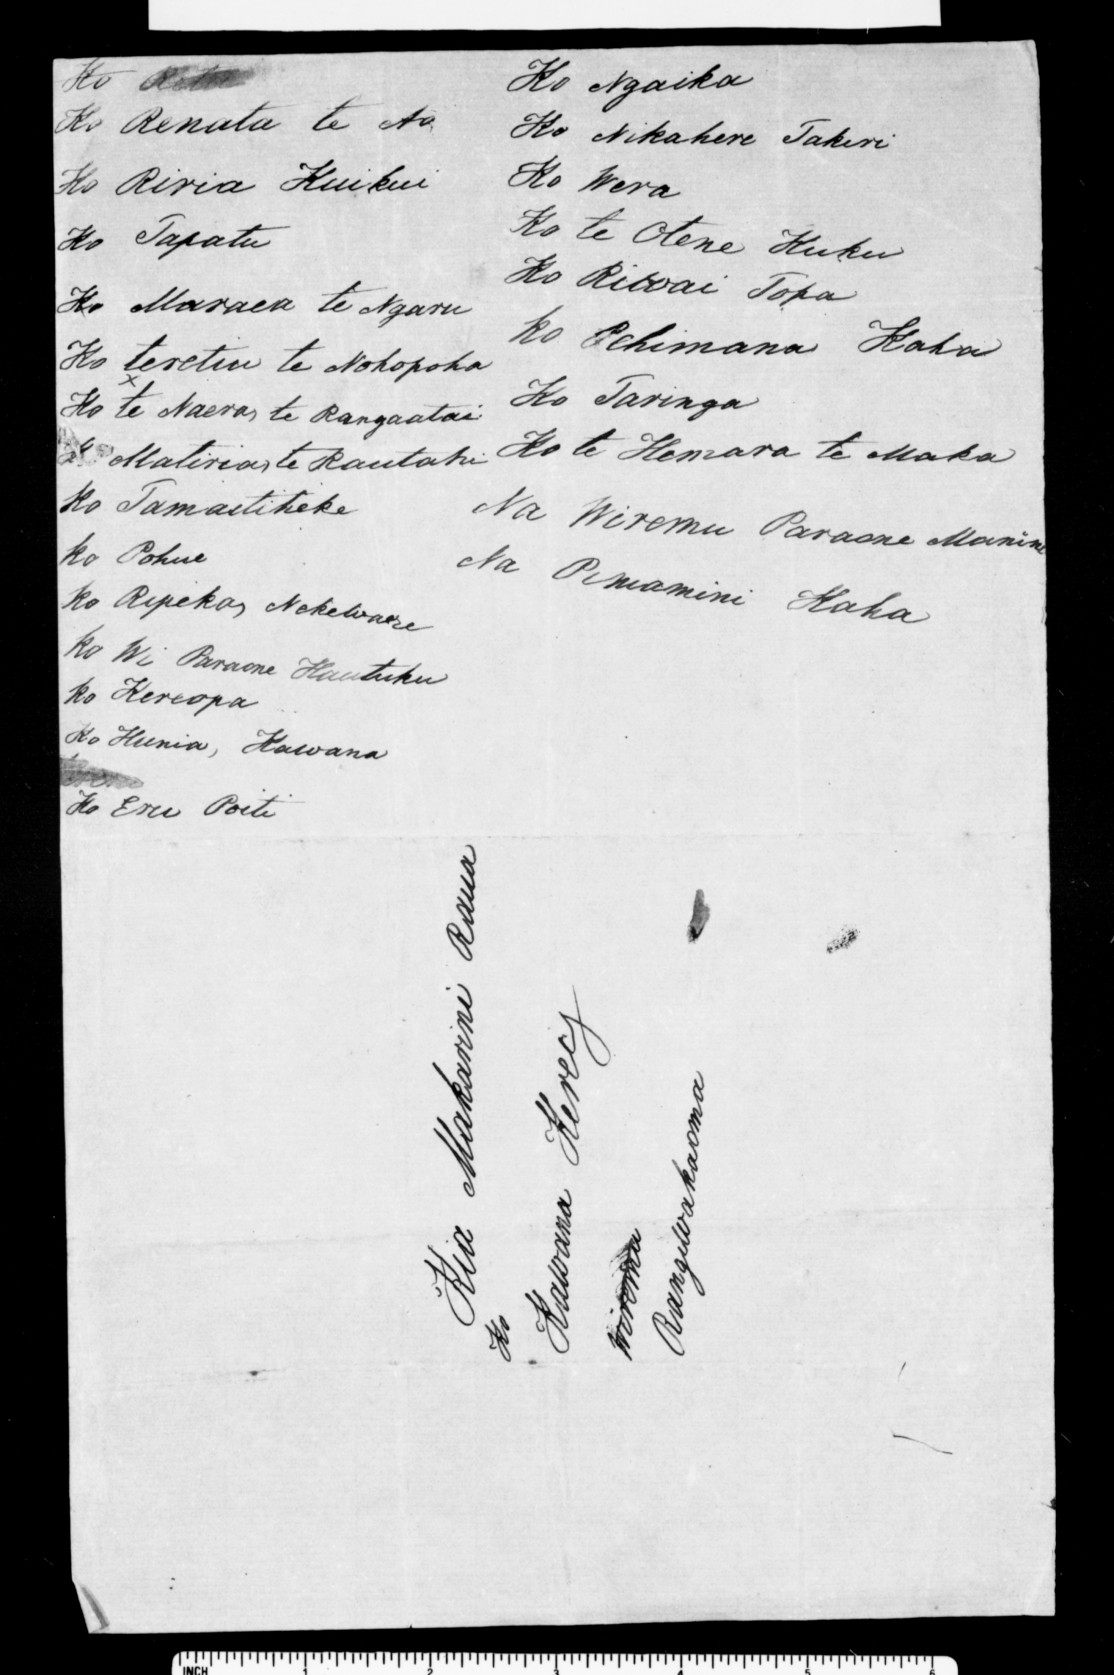 Ko
Ko Renata te Ao
Ko Riria Kuikui
Ko Tapatu
Ko Maraea te Ngaru
Ko teretiu te Nohopoha
Ko te Naera, te Rangaatai
Matiria, te Rautahi
Ko Tamaitiheke
Ko Pohue
Ko Ripeka, Nekewaere
Ko Wi Paraone Hautuku
Ko Kereopa
Ko Hunia, Kawana
Ko Eru Poiti
Ko Ngaika
Ko Nikahere Takiri
Ko Wera
Ko te Otene Kuku
Ko Riwai Topa
Ko Pehimana Kaha
Ko Taringa
Ko te Hemara te Maka
Na Wiremu Paraone Manine
Na Pineamini Kaha
Kia Makarini Raua
Ko
Kawana Kerei
Wirema
Rangiwakaoma
INCH 1 2 3 4 5 6